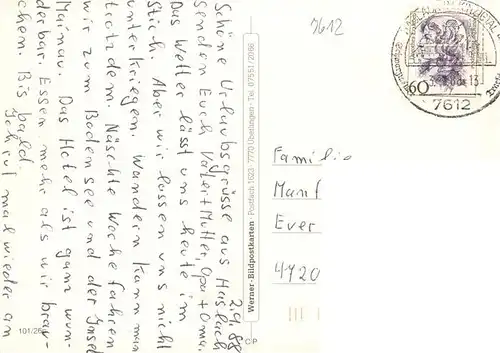 2.9.88
Schöne Urlaubsgrüsse aus Haslach
senden Euch Vater+Mutter, Opa+Oma.
Das Wetter lässt uns heute im
Stich. Aber wir lassen uns nicht
unterkriegen. Wandern kann man
trotzdem. Näschte Woche fahren
wir zum Bodensee und der Insel
Mainau. Das Hotel ist ganz wun-
derbar. Essen mehr als wir brau-
chen. Bis bald.
Ich ruf mal wieder an
101/26
Werner-Bildpostkarten · Postfach 1623 · 7770 Überlingen · Tel. 07551/2066
C/P
7612
60
13
7612
Familie
Manf
Ever
4720